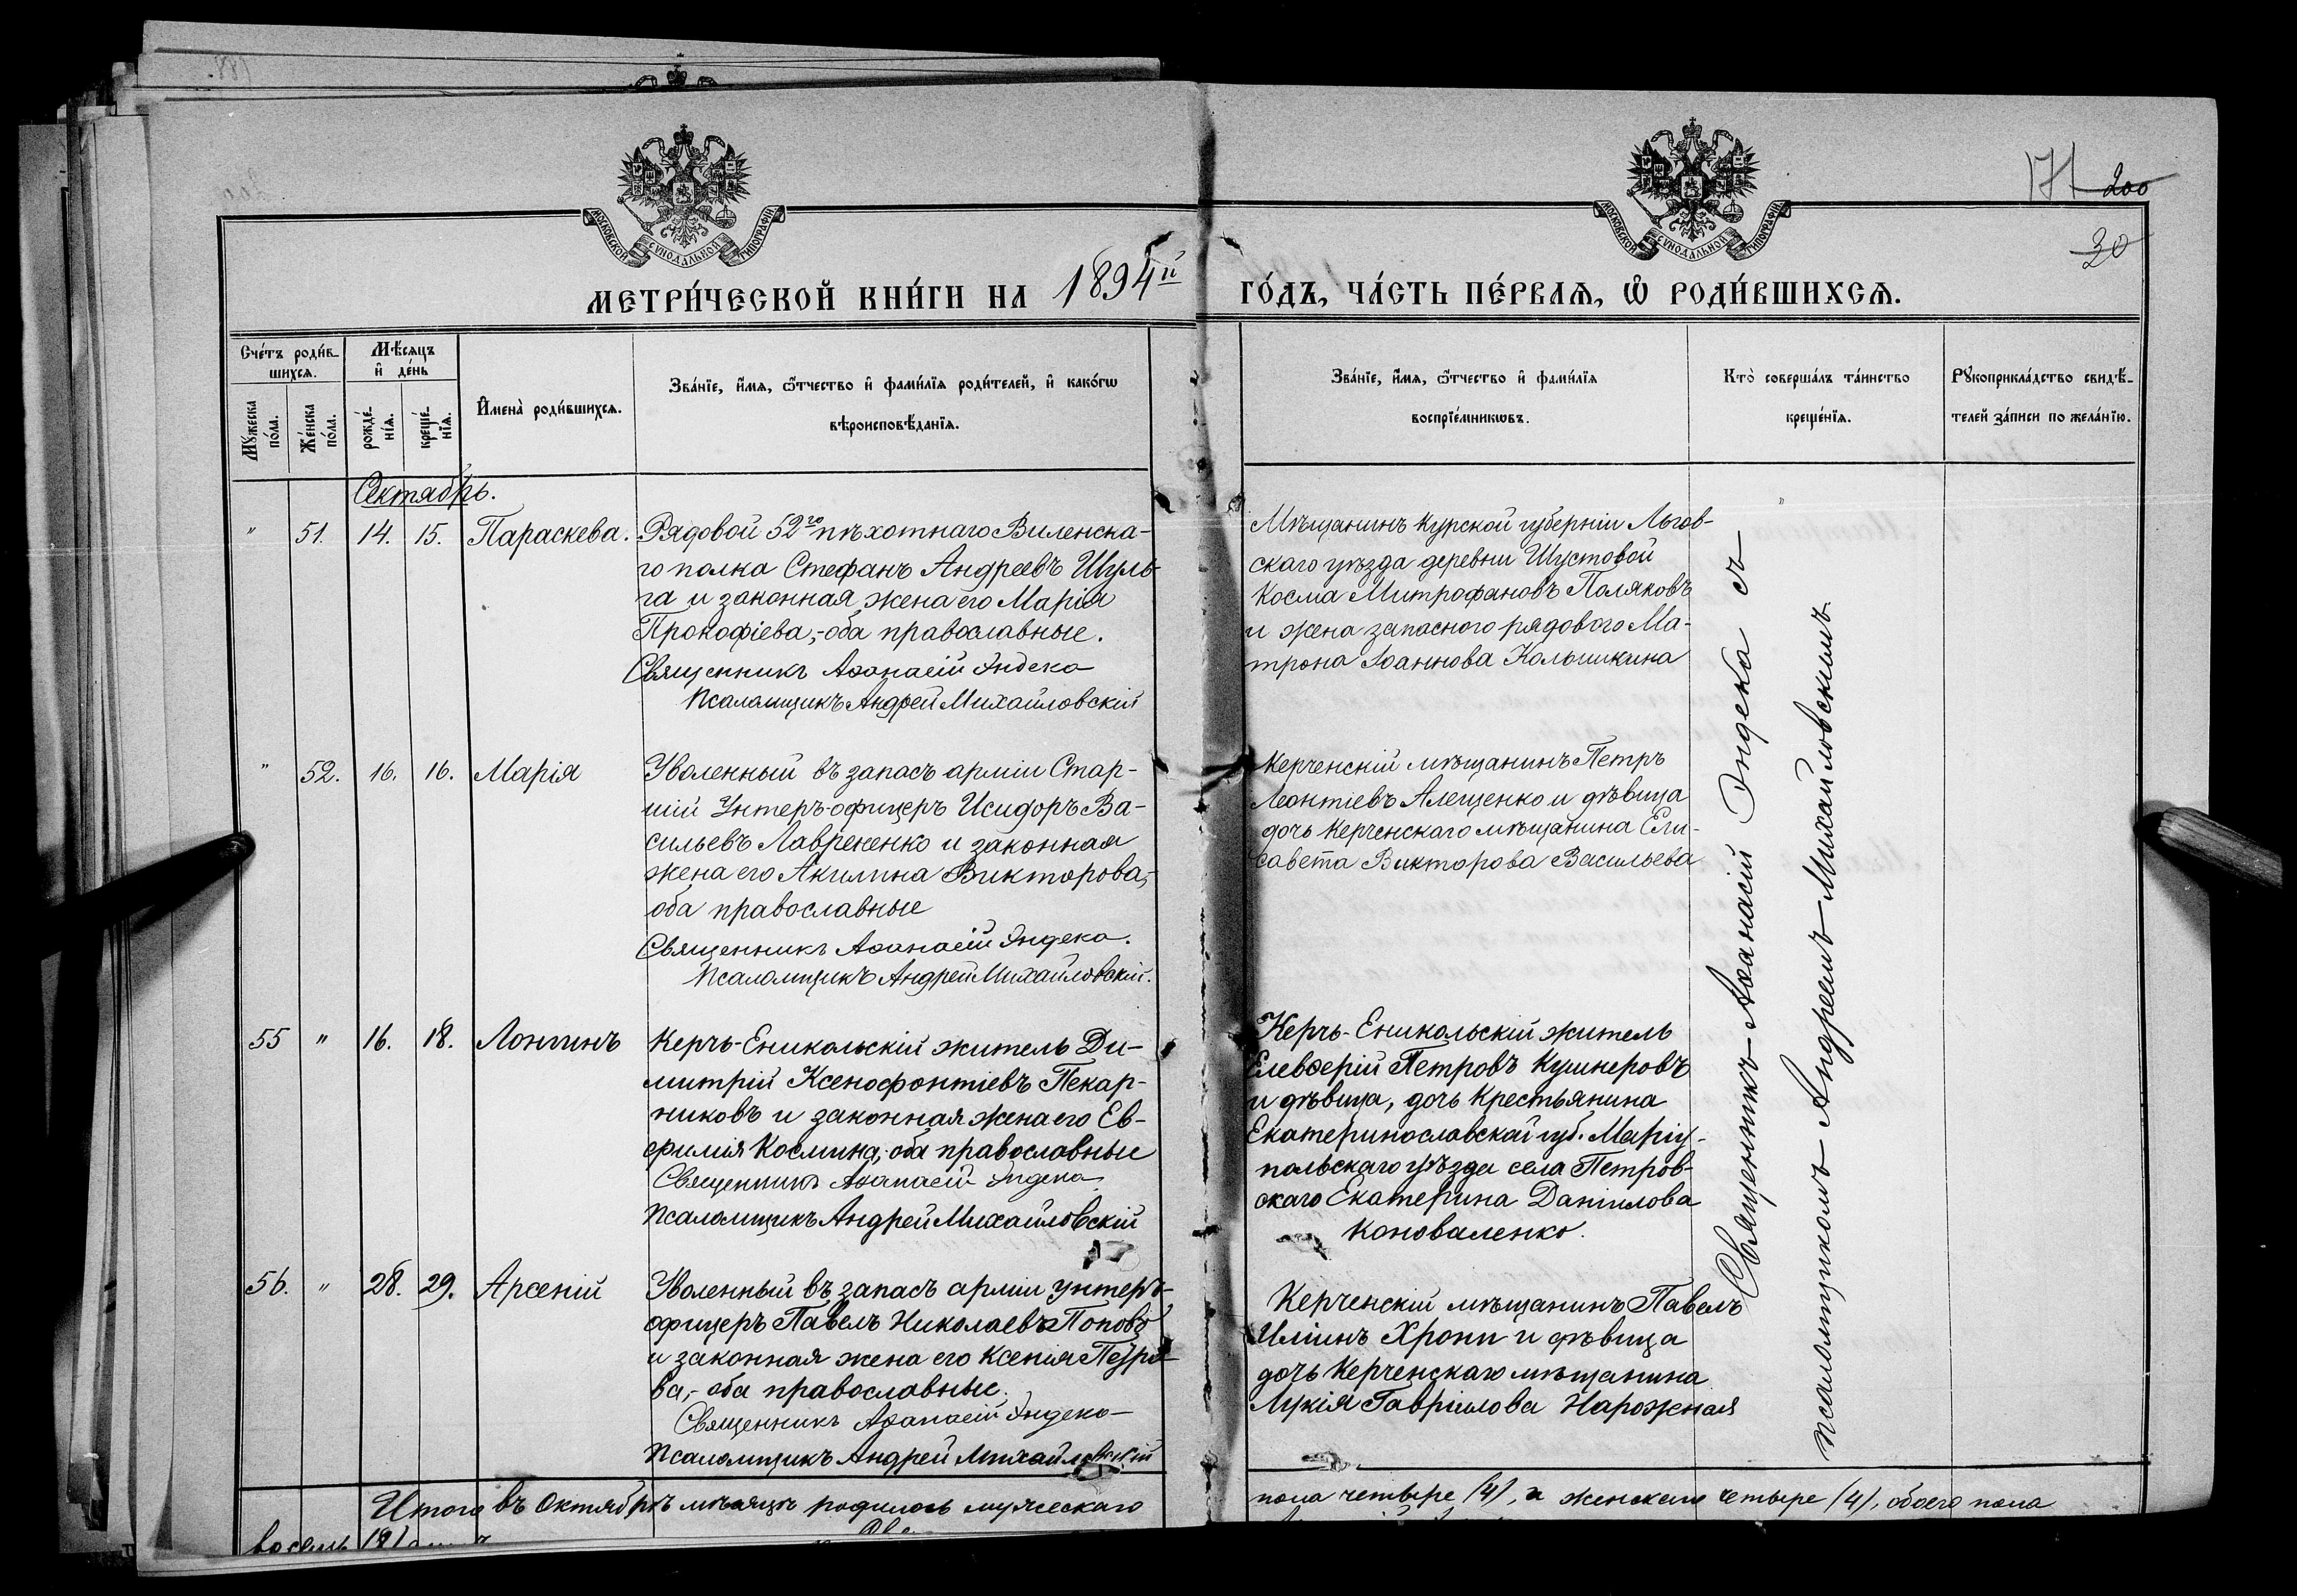 171 200
30
МОСКОВСКОЙ СУНОДАЛЬНОЙ ТИПОГРАФІИ
МОСКОВСКОЙ СУНОДАЛЬНОЙ ТИПОГРАФІИ
МЕТРИ́ЧЕСКОЙ КНИ́ГИ НА 1894й ГО́ДЪ, ЧА́СТЬ ПЕ́РВАѦ, Ѽ РОДИ́ВШИХСѦ.
Сче́тъ роди́в-
шихсѧ.
Мꙋ́жеска
по́ла.
Же́нска
по́ла.
Мѣ́сѧцъ
и҆ де́нь
рожде́-
нїѧ.
креще́-
нїѧ.
И҆мена̀ роди́вшихсѧ.
Зва́нїе, и҆́мѧ, ѻ҆́тчество и҆ фами́лїѧ роди́телей, и҆ како́гѡ
вѣроисповѣ́данїѧ.
Зва́нїе, и҆́мѧ, ѻ҆́тчество и҆ фами́лїѧ
воспрїе́мникѡвъ.
Кто̀ соверша́лъ та́инство
креще́нїѧ.
Рꙋкоприкла́дство свидѣ́-
телей за́писи по жела́нїю.
Октябрь.
" 51. 14. 15. Параскева.
Рядовой 52го пѣхотнаго Виленска-
го полка Стефанъ Андреевъ Шуль-
га и законная жена его Марія
Прокофіева,- оба православные.
Священникъ Аѳанасій Эндека
Псаломщикъ Андрей Михайловскій
Мѣщанинъ Курской губерніи Льгов-
скаго уѣзда деревни Шустовой
Косма Митрофановъ Поляковъ
и жена запасного рядового Ма-
трона Іоаннова Колышкина
" 52. 16. 16. Марія
Уволенный въ запасъ арміи Стар-
шій Унтеръ-офицеръ Исидоръ Ва-
сильевъ Лавре­ненко и законная
жена его Акилина Викторова,-
оба православные
Священникъ Аѳанасій Эндека.
Псаломщикъ Андрей Михайловскій.
Керченскій мѣщанинъ Петръ
Леонтіевъ Алещенко и дѣвица
дочь Керченскаго мѣщанина Ели-
савета Викторова Васильева
55 " 16. 18. Лонгинъ
Керчь-Еникольскій житель Ди-
митрій Ксенофонтіевъ Пекар-
никовъ и законная жена его Ев-
фимія Космина,- оба православные
Священникъ Аѳанасій Эндека.
Псаломщикъ Андрей Михайловскій
Керчь-Еникольскій житель
Елевѳерій Петровъ Кушнеровъ
и дѣвица, дочь крестьянина
Екатеринославской губ. Маріу-
польскаго уѣзда села Петров-
скаго Екатерина Даніилова
Коноваленко.
56. " 28. 29. Арсеній
Уволенный въ запасъ арміи унтеръ-
офицеръ Павелъ Николаевъ Поповъ
и законная жена его Ксенія Петро-
ва,- оба православные.
Священникъ Аѳанасій Эндека
Псаломщикъ Андрей Михайловскій
Керченскій мѣщанинъ Павелъ
Иліинъ Хрони и дѣвица
дочь Керченскаго мѣщанина
Лукія Гавріилова Нарожная
Священникъ Аѳанасій Эндека съ
псаломщикомъ Андреемъ Михайловскимъ
Итого въ Октябрѣ мѣсяцѣ родилось мужескаго пола четыре (4), а женскаго четыре (4), обоего пола
восемь (8)